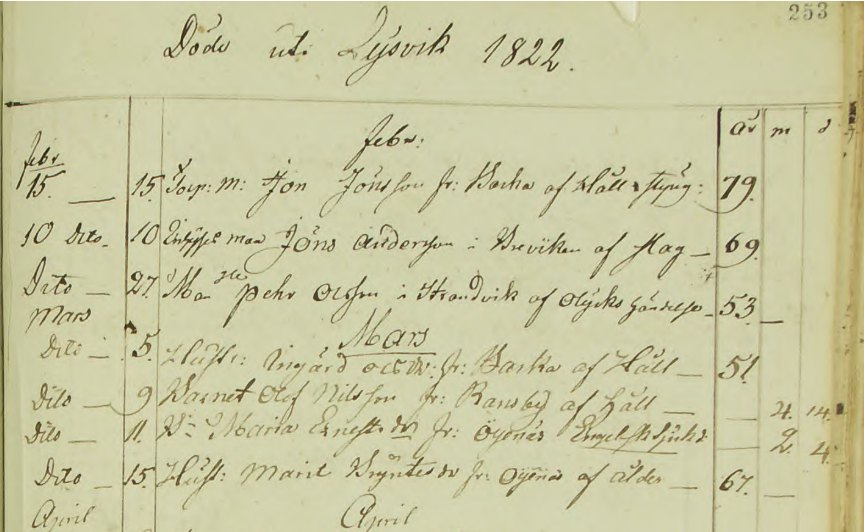 253
Döde uti Lysvik 1822.
år m d
Febr:
Febr.
15. — 15. Torp: m: Jon Jönsson fr: Backa af Håll & styng: 79.
10 Dito. 10 man Jöns Andersson i Breviken af Slag — 69.
Dito — 27. Man Pehr Olsson i Strandvik af Olycks händelse — 53. —
Mars
Mars
Dito — 5. Hust: Ingärd Ols dr: fr: Backa af Håll — 51.
Dito — 9 Barnet Olof Nilsson fr: Ransby af Håll — — 4. 14.
Dito — 11. Dn Maria Ernests dr fr: Öjenäs Engelsk Sjuka — 2. 4.
Dito — 15. Hust: Marit Bryntes dr fr: Öjenäs af ålder — 67. —
April
April